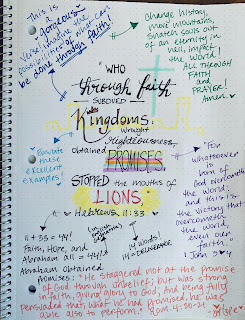 This is
a gorgeous
verse! Imagine the
possibilities of what can
be done through faith!
Change history,
move mountains,
snatch souls out
of an eternity in
hell, impact
the world!
ALL THROUGH
FAITH
and
PRAYER!
Amen.
"WHO
through faith
SUBDUED
Kingdoms
Wrought
righteousness,
obtained PROMISES
STOPPED the mouths of
LIONS."
Hebrews 11:33
most
excellent
examples!
"For
whatsoever
is
born of
God overcometh
the world:
and this is
the victory that
overcometh
the world,
even our
faith."
1 John 5:4
11+33=44!
Faith, Hope, and
Abraham all = 44!
Abraham obtained
14 words!
14 = DELIVERANCE
Promises! "He staggered not at the promise
of God through unbelief; but was strong
in faith, giving glory to God; And being fully
persuaded that, what he had promised, he was
able also to perform." Rom 4:20-21